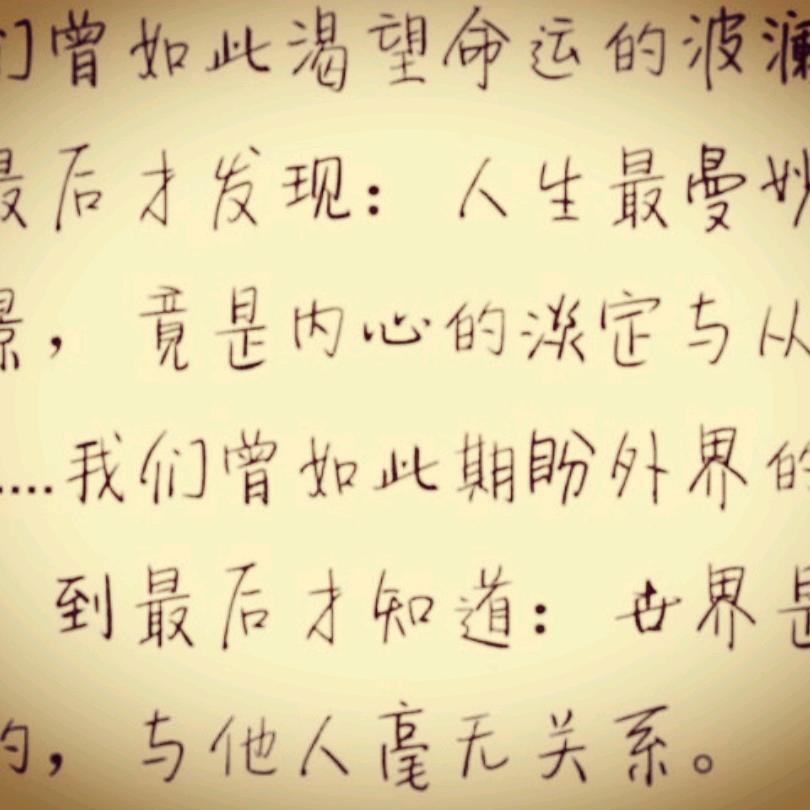 们曾如此渴望命运的波澜
最后才发现：人生最曼妙
景，竟是内心的淡定与从
....我们曾如此期盼外界的
到最后才知道：世界是
的，与他人毫无关系。